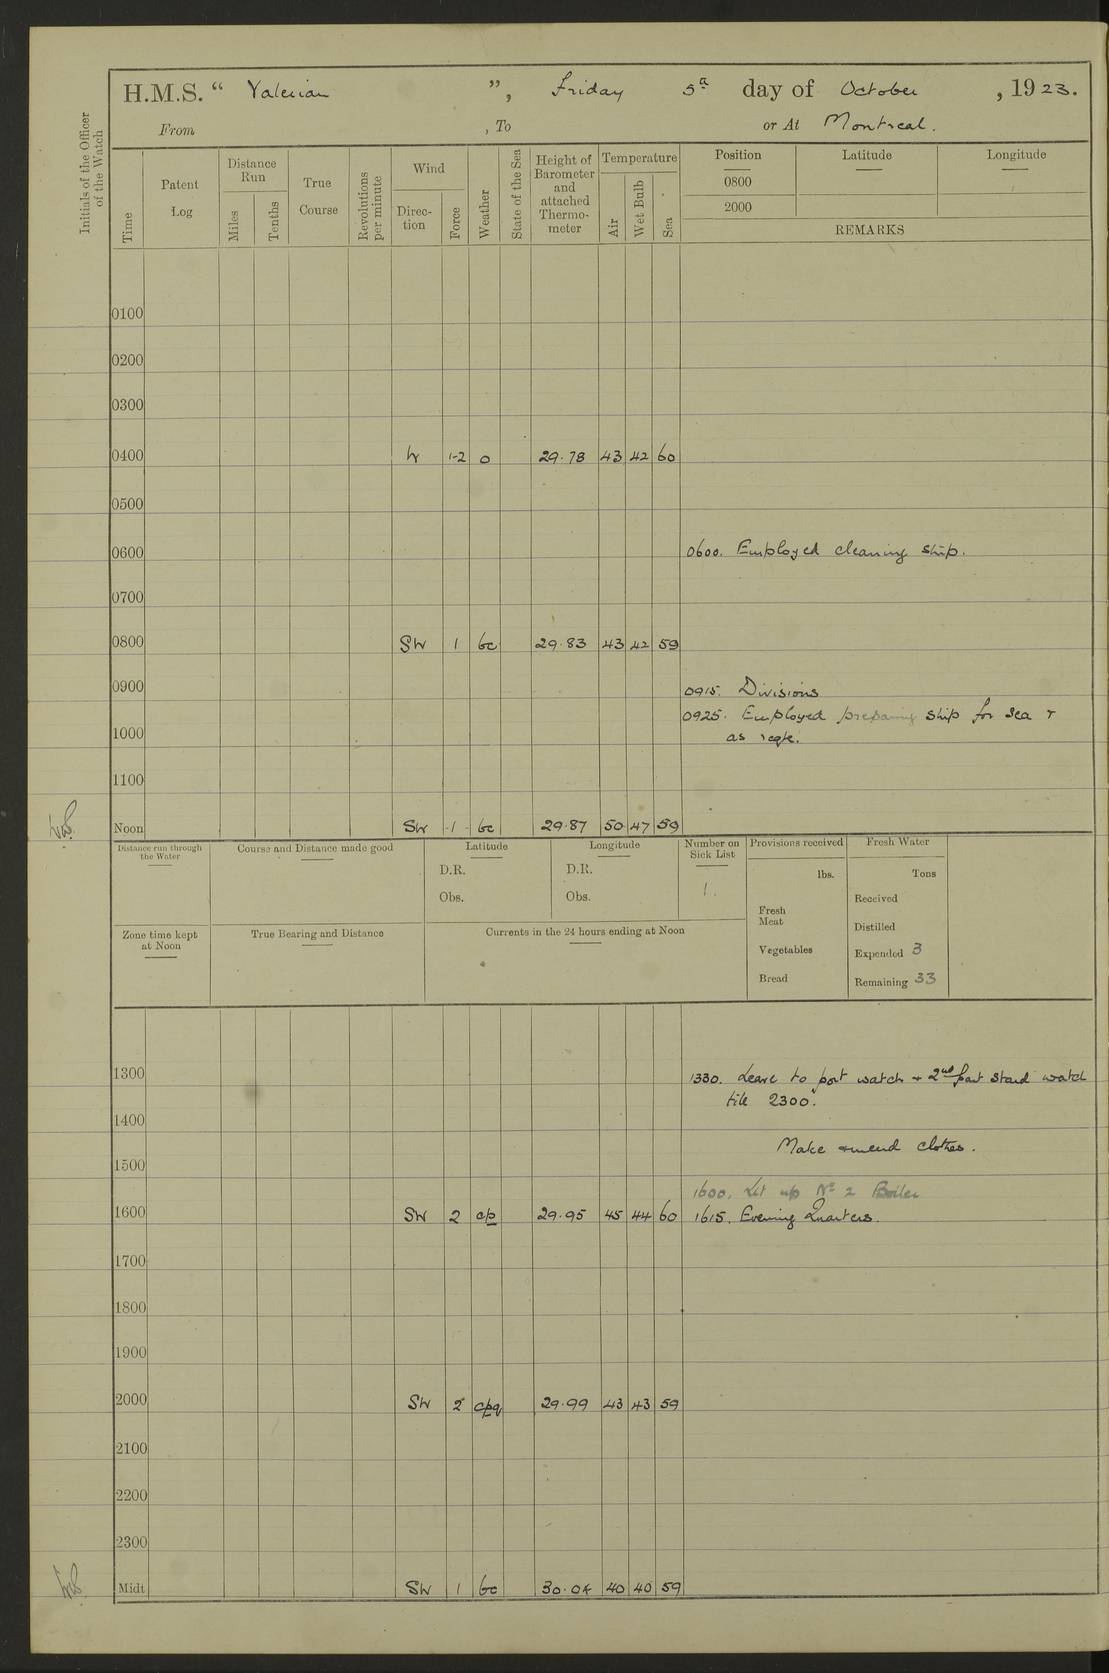 H.M.S. “ Valerian ”, Friday 5th day of October, 1923.
From , To or At Montreal.
Initials of the Officer of the Watch
Time
Patent Log
Distance Run
Miles
Tenths
True Course
Revolutions per minute
Wind
Direc-tion
Force
Weather
State of the Sea
Height of Barometer and attached Thermo-meter
Temperature
Air
Wet Bulb
Sea
Position Latitude Longitude
0800
2000
REMARKS
0100
0200
0300
0400 W 1-2 o 29.78 43 42 60
0500
0600 0600. Employed cleaning ship.
0700
0800 SW 1 bc 29.83 43 42 59
0900 0915. Divisions
0925. Employed preparing ship for sea +
1000 as reqte.
1100
Noon SW 1 bc 29.87 50 47 59
Distance run through the Water
Course and Distance made good
Latitude
D.R.
Obs.
Longitude
D.R.
Obs.
Number on Sick List
1.
Provisions received
lbs.
Fresh Meat
Vegetables
Bread
Fresh Water
Tons
Received
Distilled
Expended 3
Remaining 33
Zone time kept at Noon
True Bearing and Distance
Currents in the 24 hours ending at Noon
1300 1330. Leave to port watch + 2nd part Starbd watch
till 2300.
1400
Make + mend clothes.
1500
1600. Lit up No 2 Boiler
1600 SW 2 cp 29.95 45 44 60 1615. Evening Quarters.
1700
1800
1900
2000 SW 2 cpq 29.99 43 43 59
2100
2200
2300
Midt SW 1 bc 30.04 40 40 59